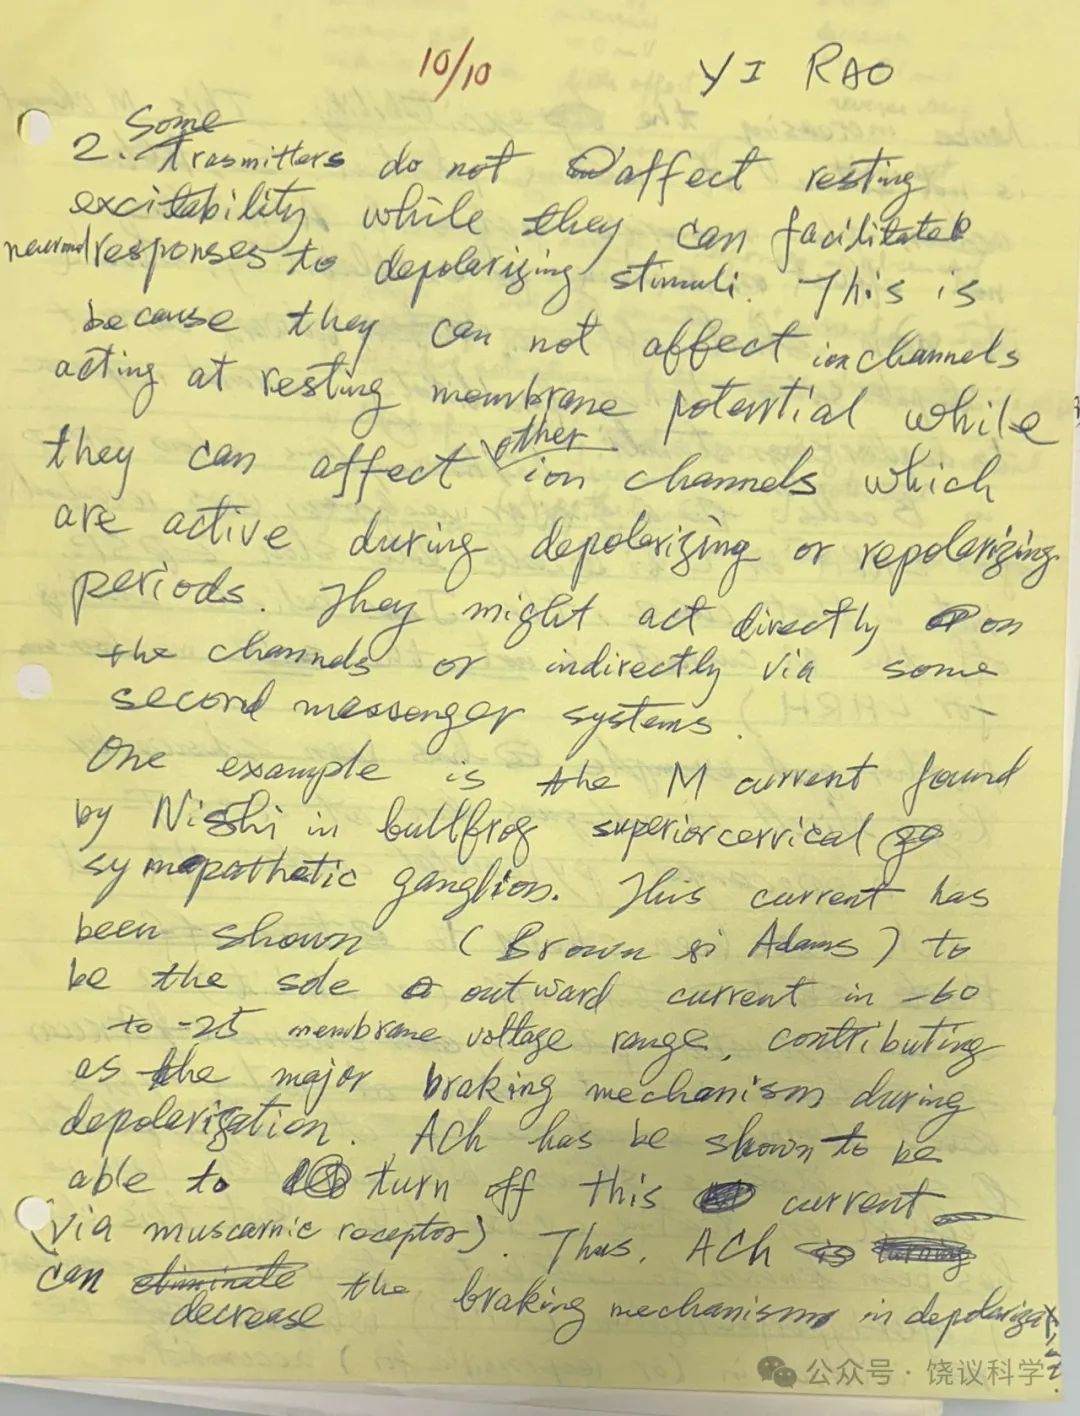 10/10 YI RAO
Some
2. Trasmitters do not affect resting
excitability while they can facilitate
neuronal responses to depolarizing stimuli. This is
because they can not affect ion channels
acting at resting membrane potential while
they can affect other ion channels which
are active during depolarizing or repolarizing
periods. They might act directly on
the channels or indirectly via some
second messenger systems.
One example is the M current found
by Nishi in bullfrog superior cervical
sympathetic ganglion. This current has
been shown (Brown & Adams) to
be the sole outward current in -60
to -25 membrane voltage range, contributing
as the major braking mechanism during
depolarization. ACh has be shown to be
able to turn off this current
(via muscarnic receptor). Thus, ACh
can eliminate the braking mechanism in depolarization.
decrease
公众号 · 饶议科学